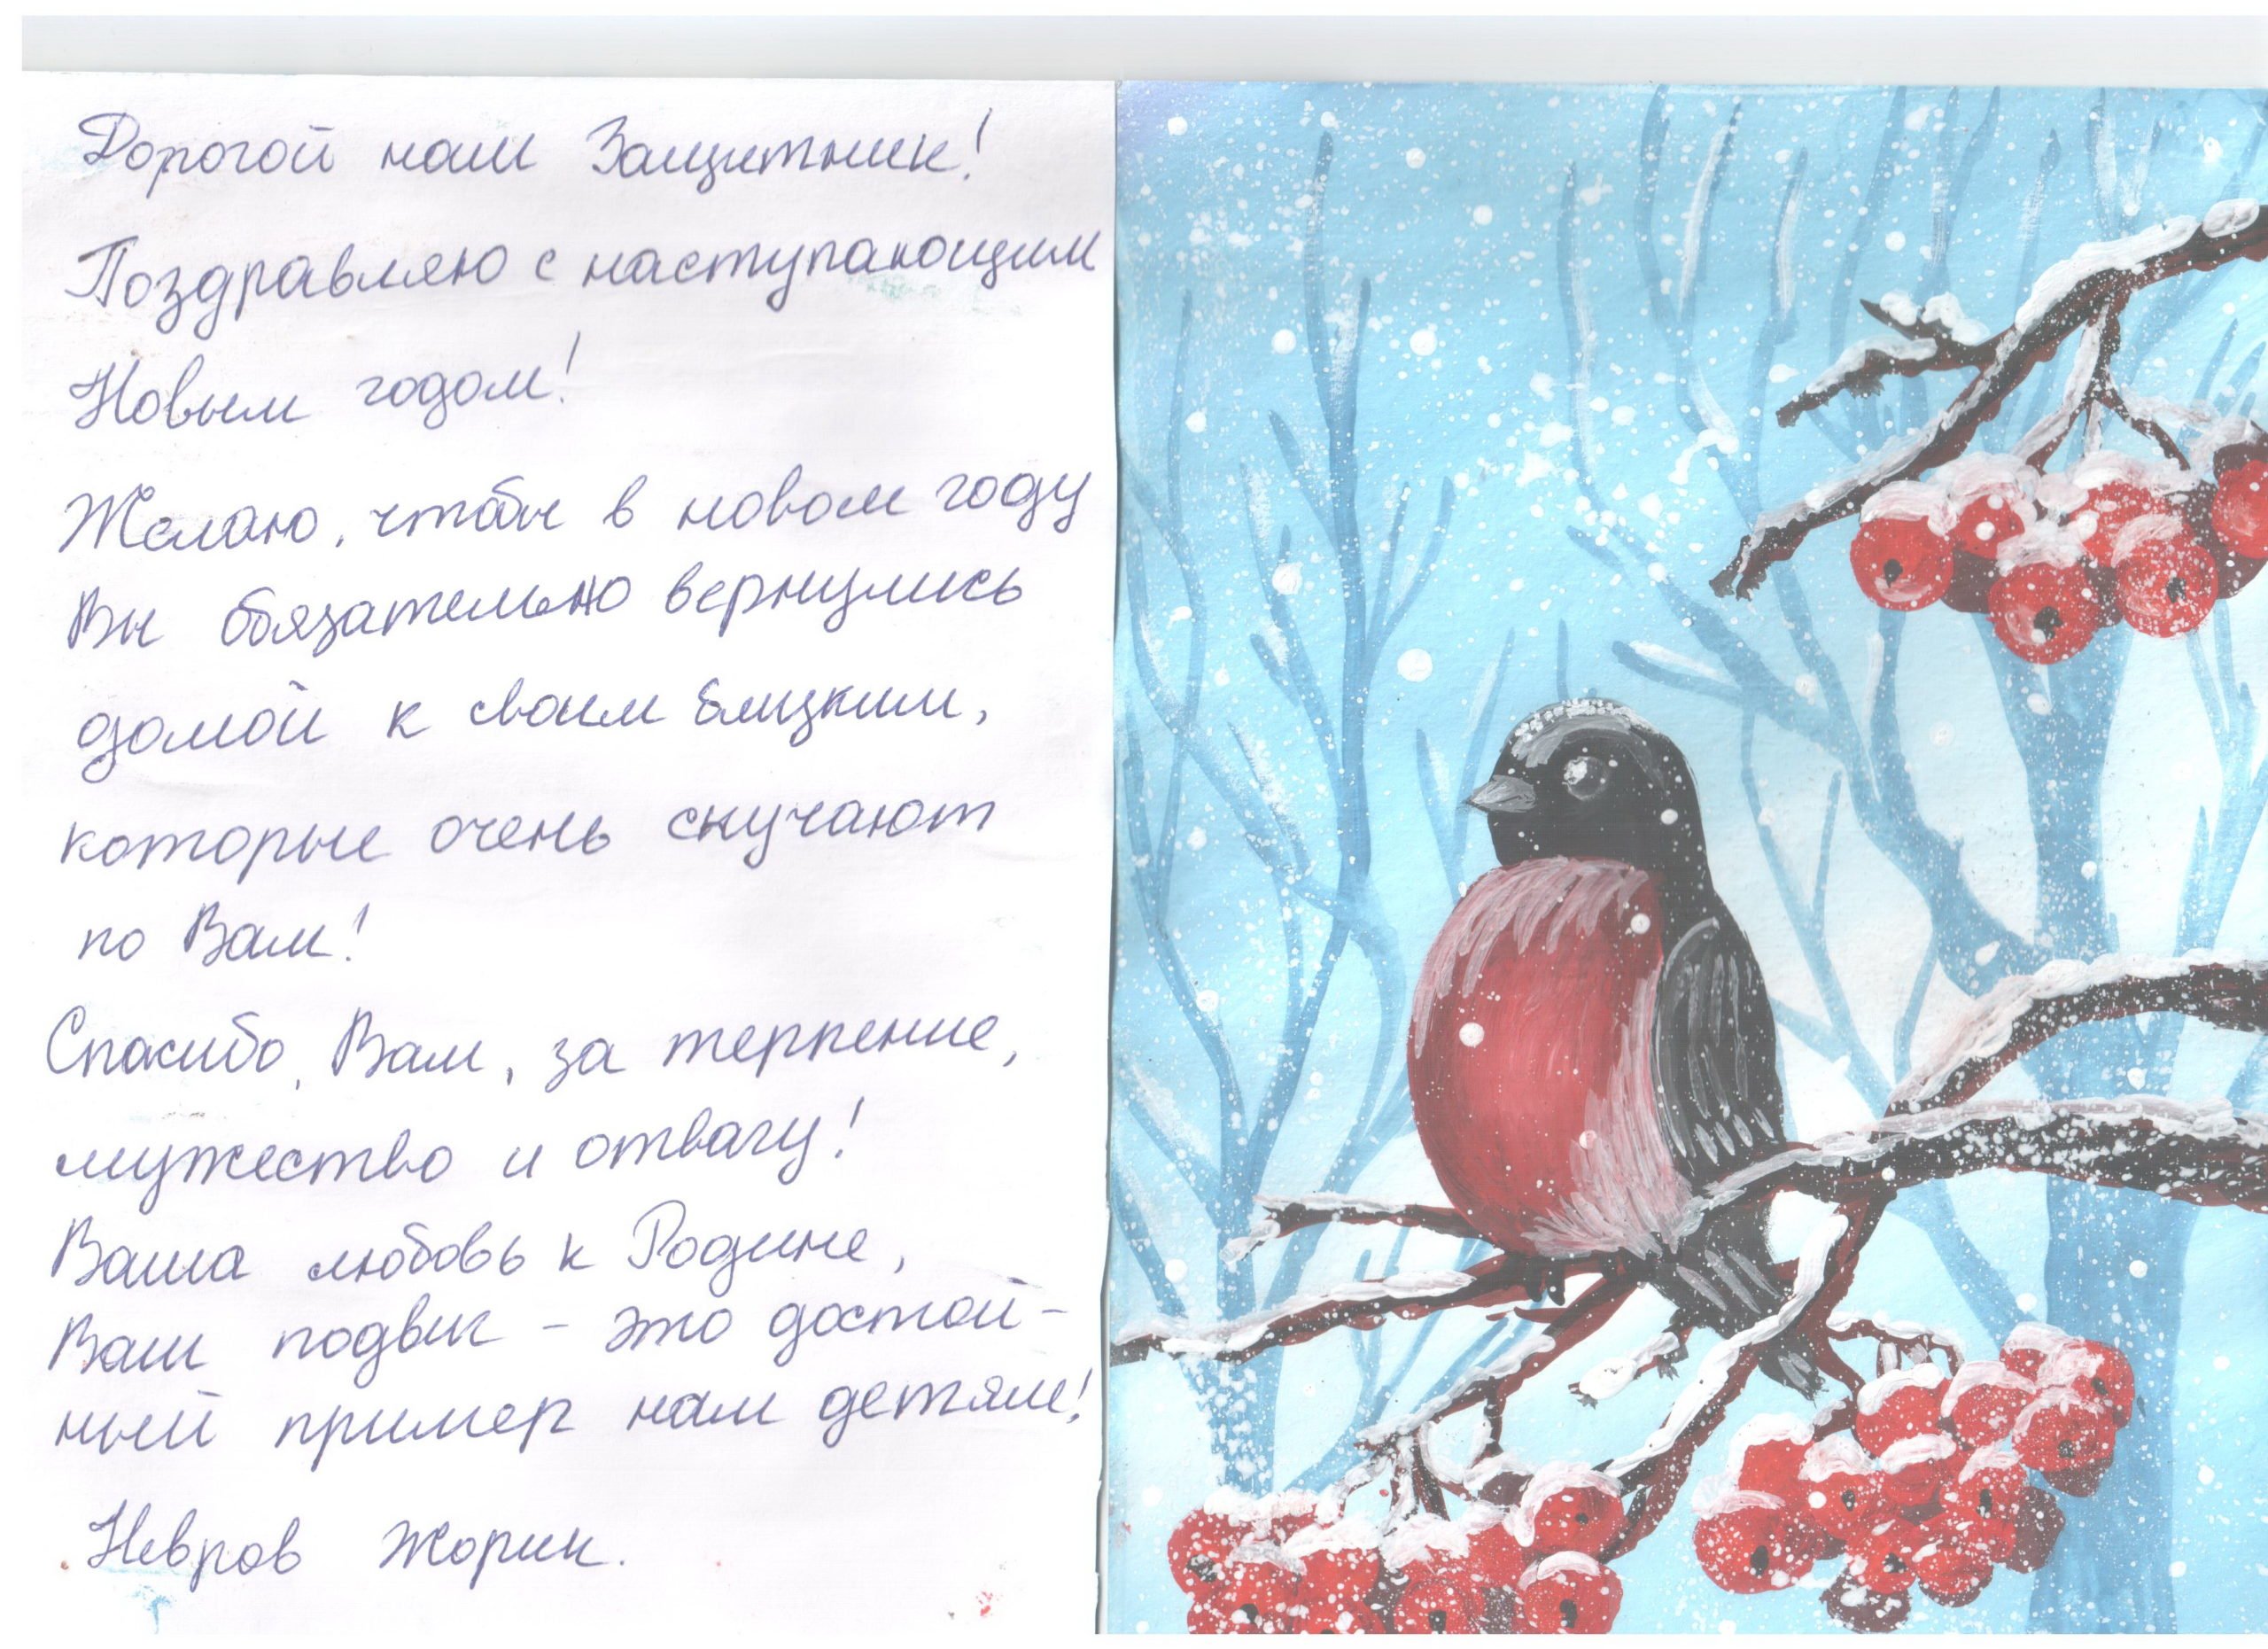 Дорогой наш Защитник!
Поздравляю с наступающим
Новым годом!
Желаю, чтобы в новом году
Вы обязательно вернулись
домой к своим близким,
которые очень скучают
по Вам!
Спасибо, Вам, за терпение,
мужество и отвагу!
Ваша любовь к Родине,
Ваш подвиг - это достой-
ный пример нам детям!
Невров Жорик.